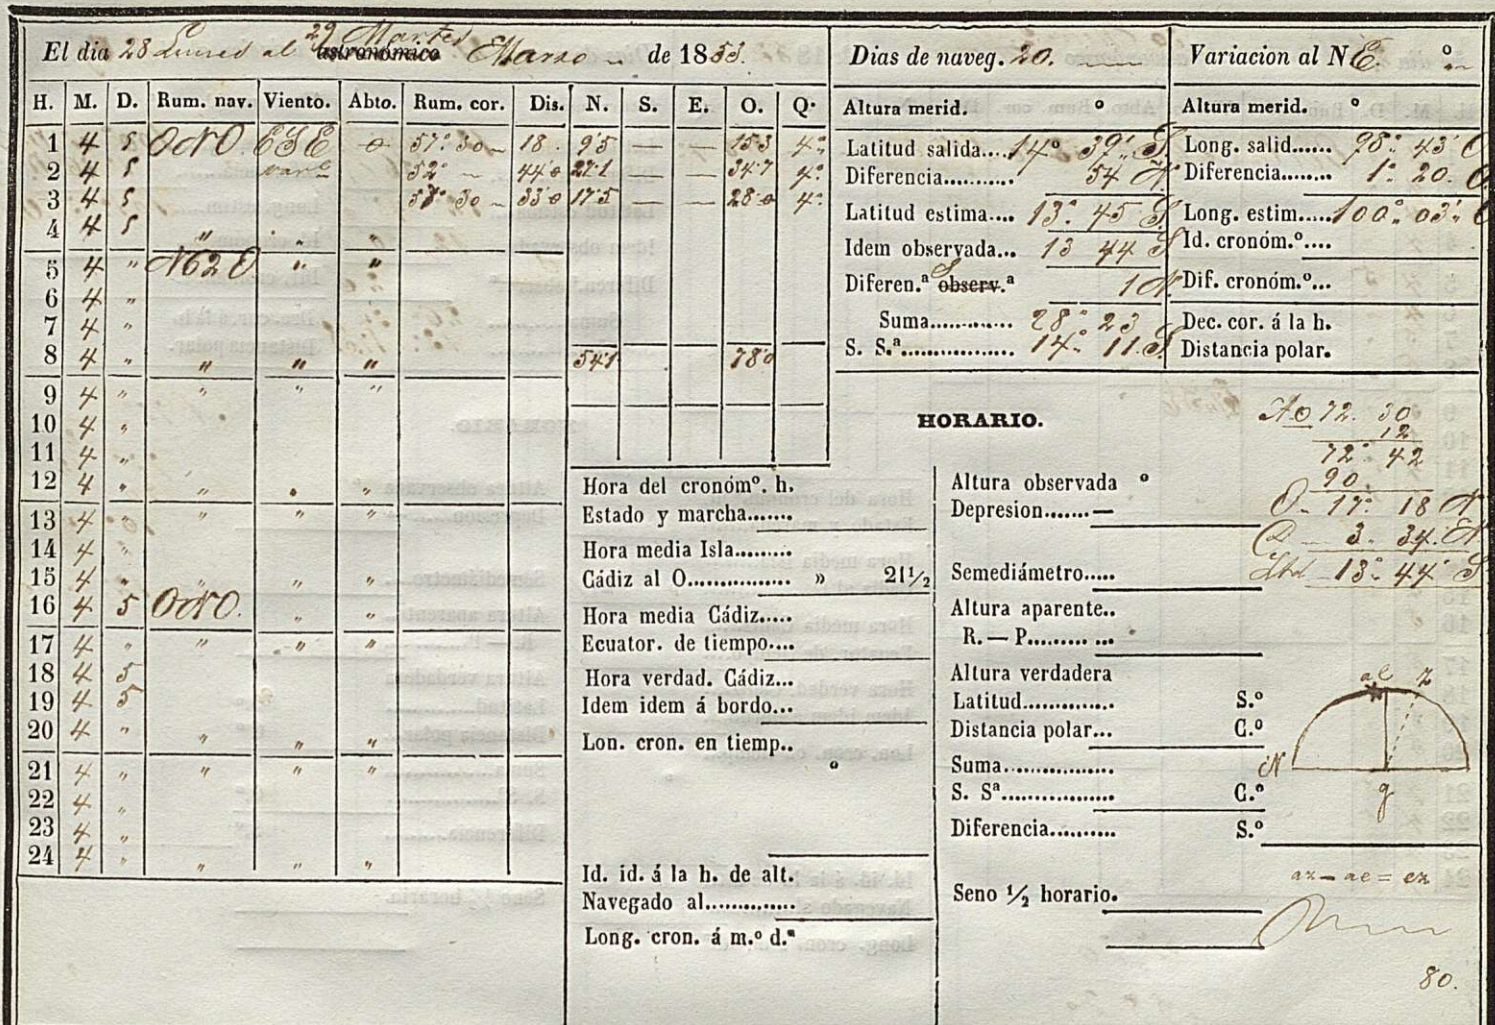 El dia 28 Lunes al 29 Martes astronómico Marzo de 1853. Dias de naveg. 20. Variacion al N E. º
H. M. D. Rum. nav. Viento. Abto. Rum. cor. Dis. N. S. E. O. Q.
Altura merid. º
Altura merid. º
1 4 5 ONO. ESE 0 57º 30 18. 9'5 — — 15'3 4º
2 4 5 varble 52º 44'0 27'1 — — 34'7 4º
3 4 5 57º 30 33'0 17'5 — — 28'0 4º
4 4 5 " " "
5 4 " N62O " "
6 4 "
7 4 "
8 4 " " " " 54'1 78'0
9 4 " " " "
10 4 "
11 4 "
12 4 " " " "
13 4 " " " "
14 4 "
15 4 " " " "
16 4 5 ONO. " "
17 4 " " " "
18 4 5
19 4 5
20 4 " " " "
21 4 " " " "
22 4 "
23 4 "
24 4 " " " "
Latitud salida.... 14º 39' S
Diferencia........... 54 N
Latitud estima.... 13º 45 S
Idem observada... 13 44 S
Diferen.ª S observ.ª 1 N
Suma............ 28º 23
S. S.ª................. 14º 11. S
Long. salid...... 98º 43' O
Diferencia........ 1º 20. O
Long. estim..... 100º 03' O
Id. cronóm.º....
Dif. cronóm.º...
Dec. cor. á la h.
Distancia polar.
HORARIO.
Hora del cronómº. h.
Estado y marcha.......
Hora media Isla.........
Cádiz al O................ » 21½
Hora media Cádiz.....
Ecuator. de tiempo....
Hora verdad. Cádiz...
Idem idem á bordo...
Lon. cron. en tiemp..
º
Id. id. á la h. de alt.
Navegado al..............
Long. cron. á m.º d.ª
Altura observada º
Depresion.......—
Semediámetro.....
Altura aparente..
R. — P......... ...
Altura verdadera
Latitud............. S.º
Distancia polar... C.º
Suma................
S. Sª................. C.º
Diferencia.......... S.º
Seno ½ horario.
72. 30
12
72º 42
90.
17º 18 N
3. 34. N
13º 44' S
ae z
N
q
az — ae = ez
80.